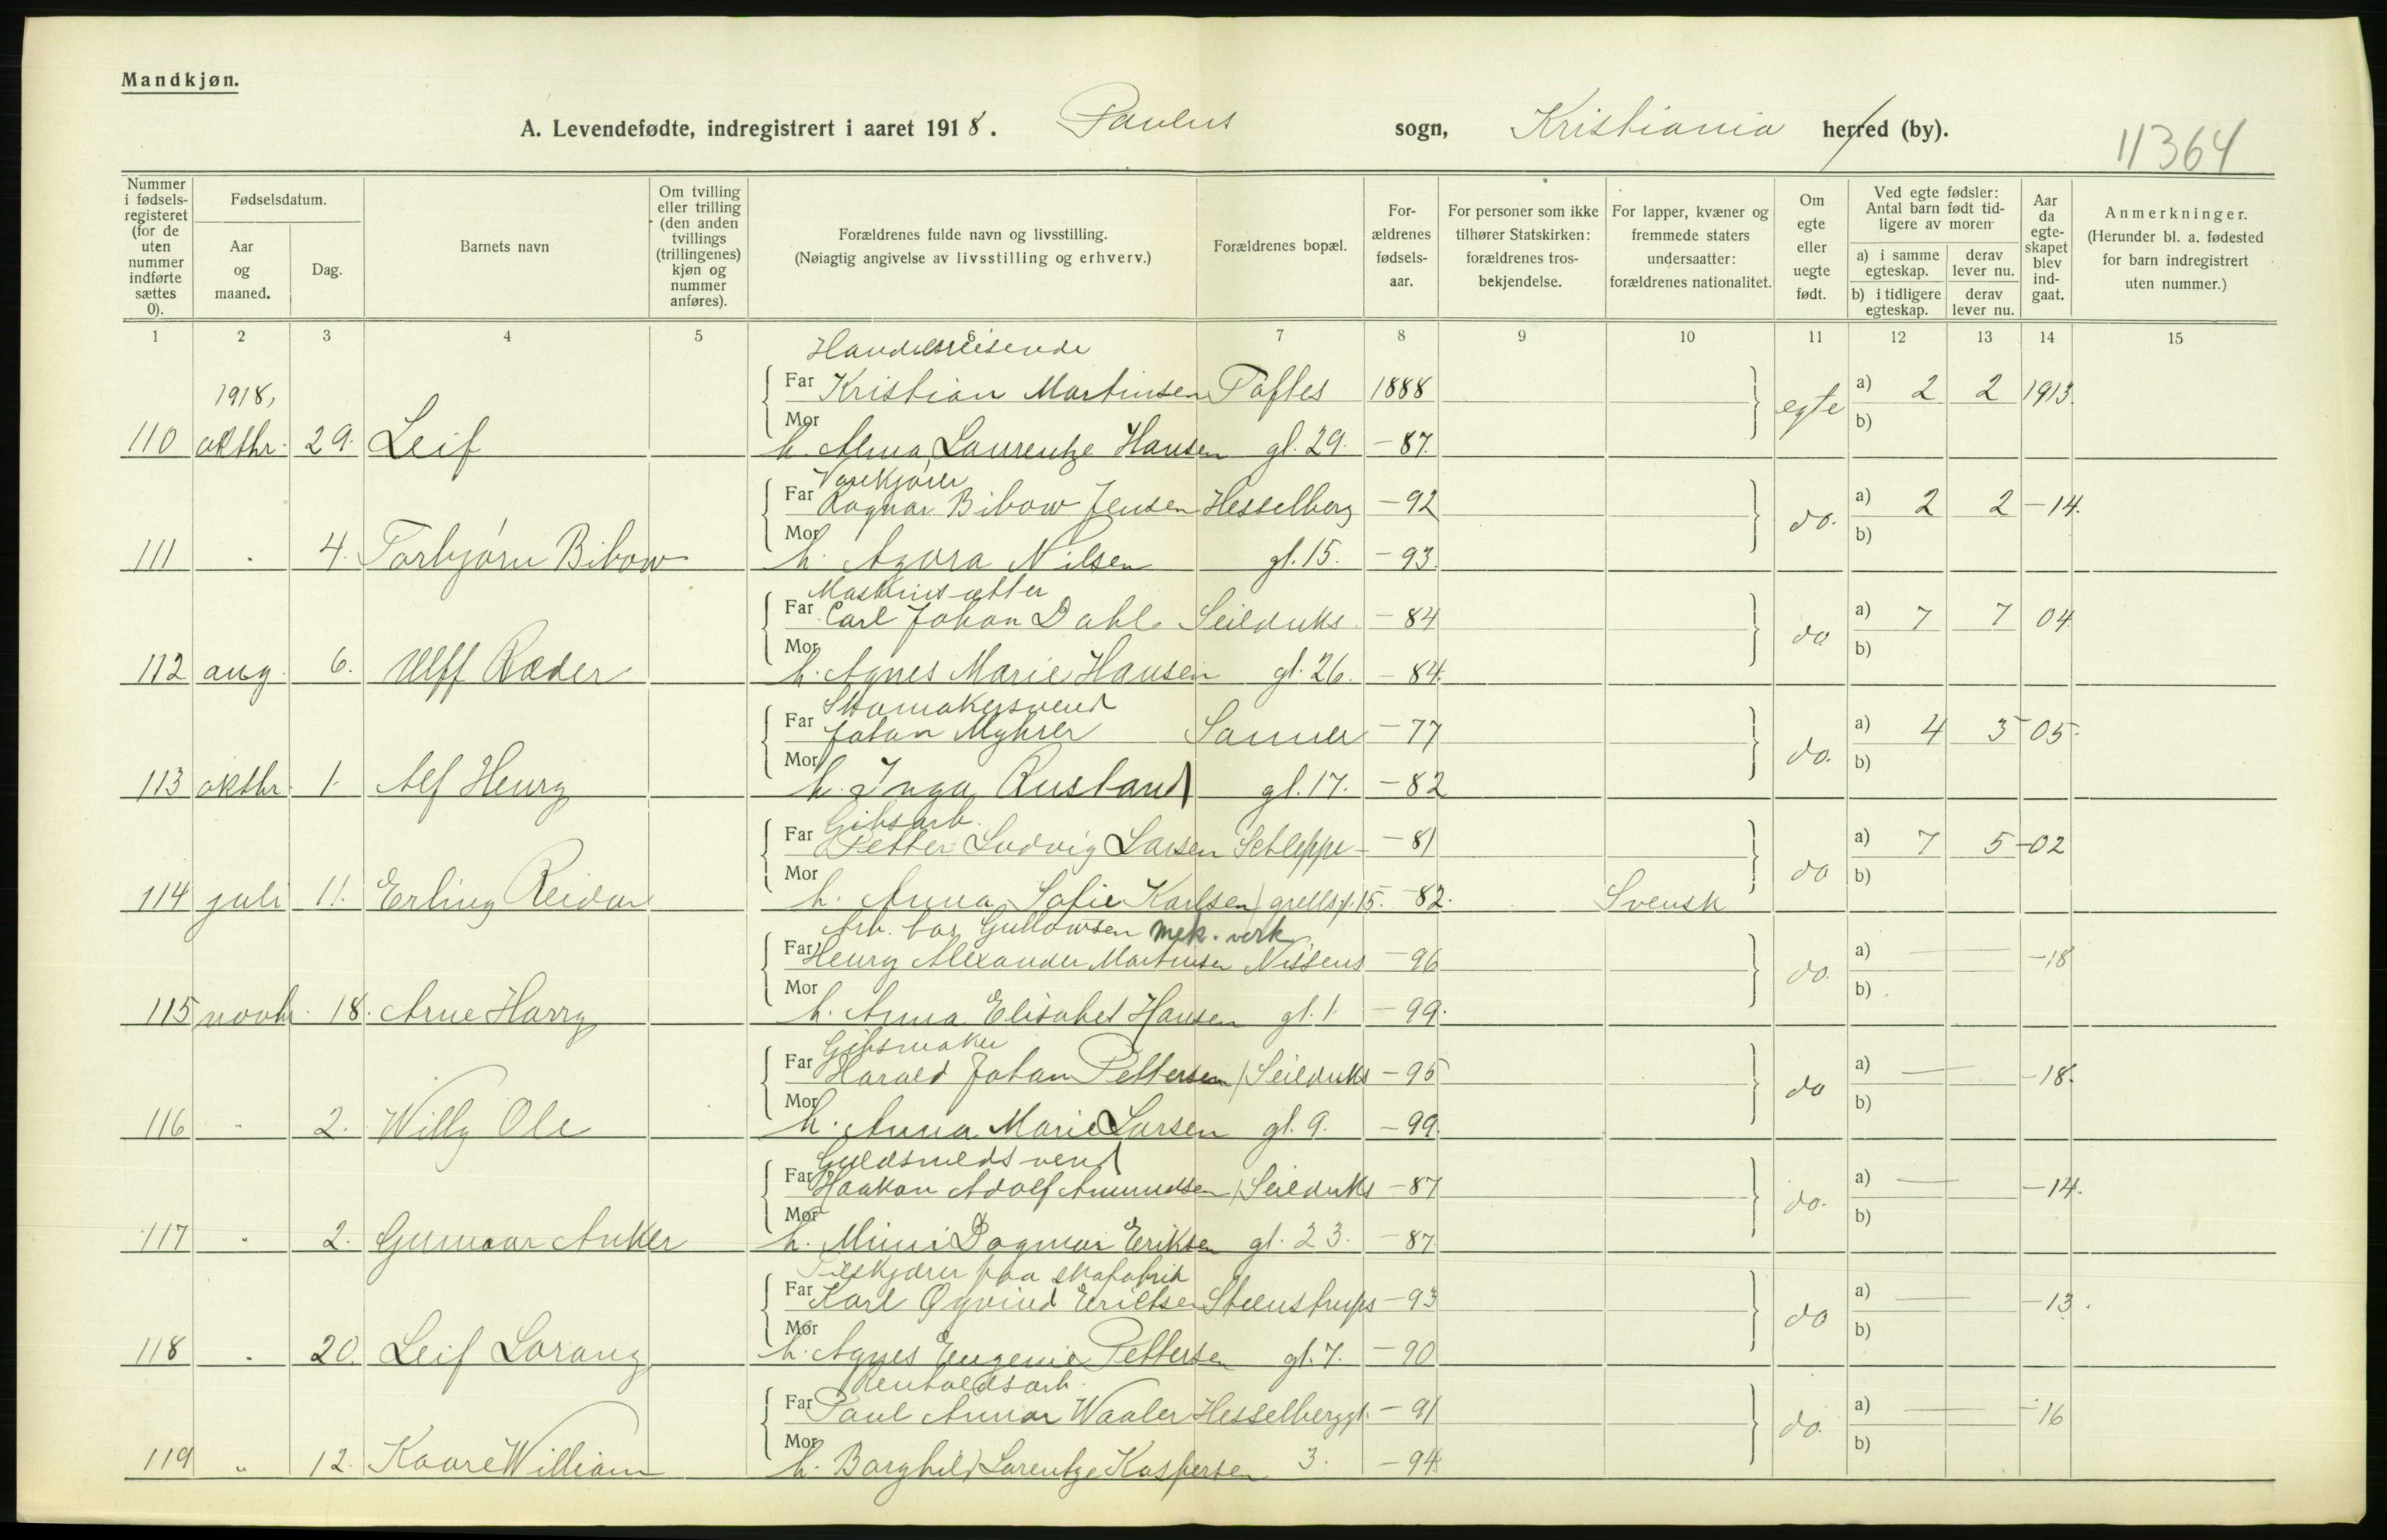 Mandkjøn.
A. Levendefødte, indregistrert i aaret 1918. Paulus sogn, Kristiania herred (by).
11364
Nummer i fødselsregisteret (for de uten nummer indførte sættes 0).
Fødselsdatum.
Aar og maaned.
Dag.
Barnets navn
Om tvilling eller trilling (den anden tvillings (trillingenes) kjøn og nummer anføres).
Forældrenes fulde navn og livsstilling.
(Nøiagtig angivelse av livsstilling og erhverv.)
Forældrenes bopæl.
Forældrenes fødselsaar.
For personer som ikke tilhører Statskirken: forældrenes trosbekjendelse.
For lapper, kvæner og fremmede staters undersaatter: forældrenes nationalitet.
Om egte eller uegte født.
Ved egte fødsler: Antal barn født tidligere av moren
a) i samme egteskap.
derav lever nu.
b) i tidligere egteskap.
derav lever nu.
Aar da egteskapet blev indgaat.
Anmerkninger.
(Herunder bl. a. fødested for barn indregistrert uten nummer.)
1 2 3 4 5 6 7 8 9 10 11 12 13 14 15
Handelsreisende
1918, Far Kristian Martinsen Toftes 1888 egte a) 2 2 1913.
110 oktbr. 29. Leif Mor h. Alma Laurentze Hansen gt. 29. - 87. b)
Varekjører
Far Ragnar Bibow Jensen Hesselberg - 92 do. a) 2 2 - 14.
111 " 4. Torbjørn Bibow Mor h. Agora Nilsen gt. 15. - 93. b)
Maskinsætter
Far Carl Johan Dahl Seilduks - 84 do a) 7 7 04
112 aug. 6. Ulff Ræder Mor h. Agnes Marie Hansen gt. 26. - 84. b)
Skomakersvend
Far Johan Myhrer Sanner - 77 do. a) 4 3 05.
113 oktbr. 1. Alf Henry Mor h. Inga Rustand gt. 17. - 82 b)
Gibsarb.
Far Petter Ludvig Larsen Schleppe - 81 do a) 7 5 - 02
114 juli 11. Erling Reidar Mor h. Anna Sofie Karlsen grellsgt. 15. - 82. Svensk b)
Arb. hos Gullowsen mek. verk.
Far Henry Alexander Martinsen Nissens - 96 do. a) - 18
115 novbr. 18. Arne Harry Mor h. Anna Elisabet Hansen gt. 1. - 99. b)
Gibsmaker
Far Harald Johan Pettersen Seilduks - 95 do a) - 18.
116 " 2. Willy Ole Mor h. Anna Marie Larsen gt. 9. - 99. b)
Guldsmedsvend
Far Haakon Adolf Amundsen Seilduks - 87 do. a) - 14.
117 " 2. Gunnar Anker Mor h. Mimi Dagmar Eriksen gt. 23. - 87. b)
Tilskjærer paa skofabrik
Far Karl Øyvind Ericksen Steenstrups - 93 do a) - 13.
118 " 20. Leif Lorang Mor h. Agnes Eugenie Pettersen gt. 7. - 90 b)
Renholdsarb.
Far Paul Annar Waaler Hesselberggt. - 91 do. a) - 16
119 " 12. Kaare William Mor h. Borghild Lorentze Kaspersen 3. - 94 b)